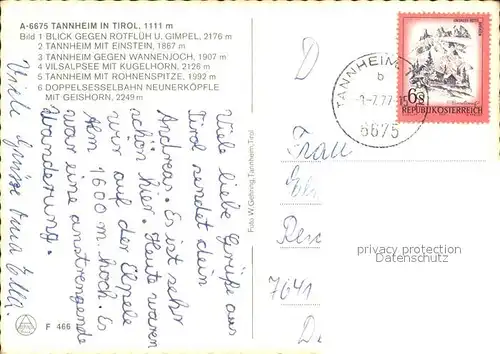 A-6675 TANNHEIM IN TIROL, 1111 m
Bild 1 BLICK GEGEN ROTFLÜH U. GIMPEL, 2176 m
2 TANNHEIM MIT EINSTEIN, 1867 m
3 TANNHEIM GEGEN WANNENJOCH, 1907 m
4 VILSALPSEE MIT KUGELHORN, 2128 m
5 TANNHEIM MIT ROHNENSPITZE, 1992 m
6 DOPPELSESSELBAHN NEUNERKÖPFLE
MIT GEISHORN, 2249 m
Viele liebe Grüße aus
Tirol sendet dein
Andreas. Es ist sehr
schön hier. Heute waren
wir auf der
Alm 1600 m hoch. Es
war eine anstrengende
Wanderung.
Viele Grüsse
F 466
Foto W. Gehring, Tannheim, Tirol
D
TANNHEIM
b
77-15
6675
S6
REPUBLIK ÖSTERREICH
Frau
7641
privacy protection
AnsichtskartenVersand.com